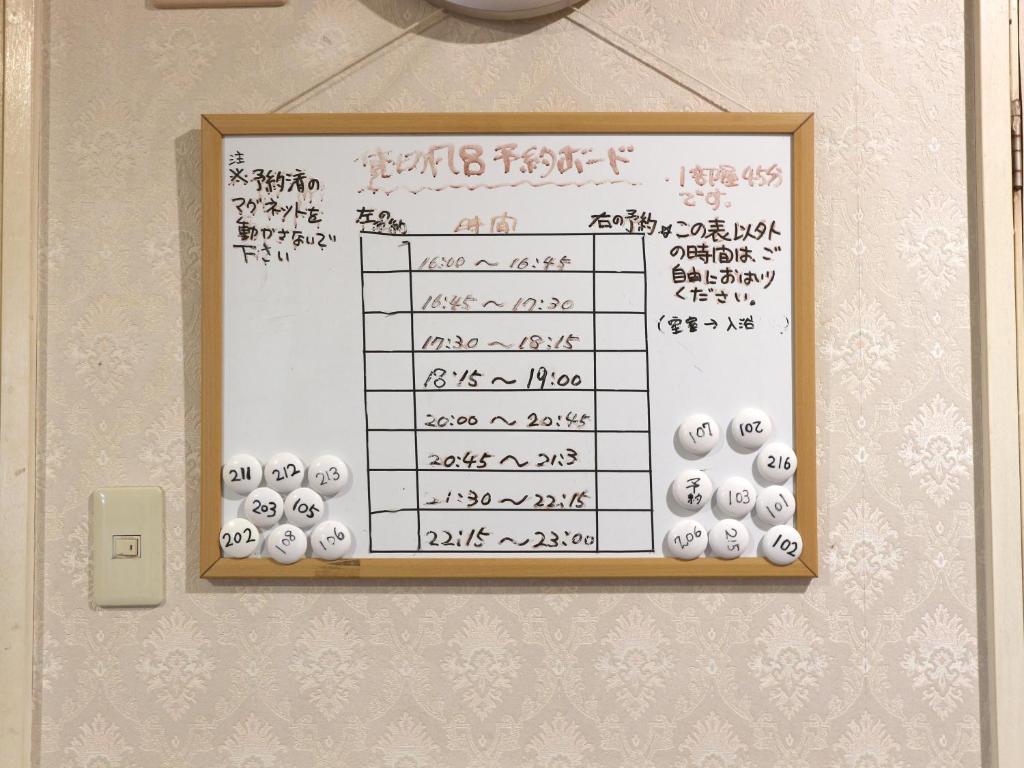 貸切風呂予約ボード
注
※予約済の
マグネットを
動かさないで
下さい
1部屋45分
です。
左の予約
時間
右の予約
16:00 〜 16:45
16:45 〜 17:30
17:30 〜 18:15
18:15 〜 19:00
20:00 〜 20:45
20:45 〜 21:3
21:30 〜 22:15
22:15 〜 23:00
※この表以外
の時間は、ご
自由におはいり
ください。
(空室→入浴 )
211 212 213
203 105
202 108 106
107 102
216
予約 103 101
206 215 102